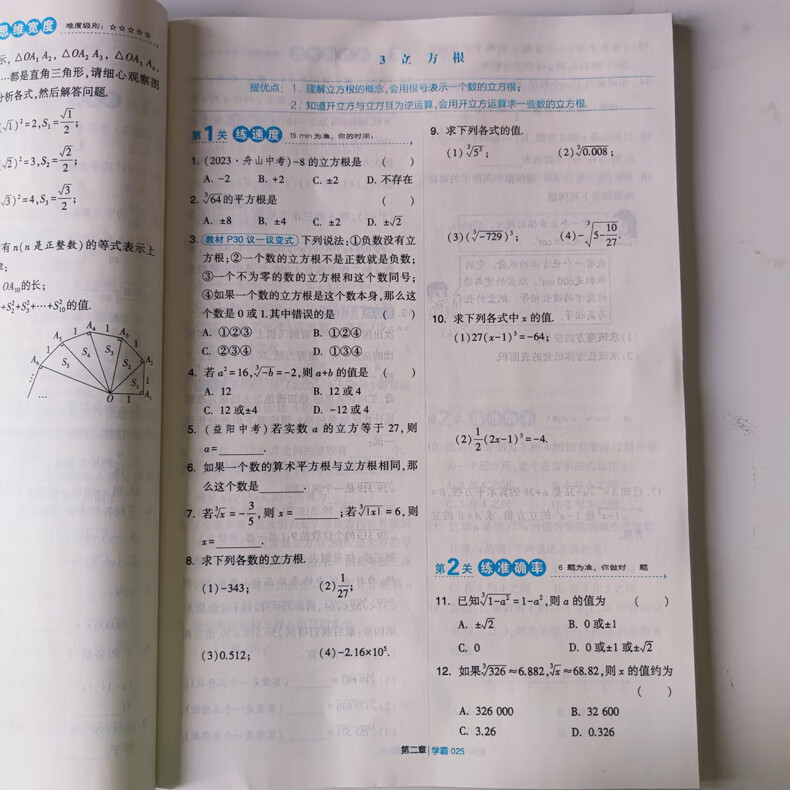 思维宽度 难度级别：☆☆☆☆☆
示，△OA₁A₂，△OA₂A₃，△OA₃A₄，
…都是直角三角形，请细心观察图
分析各式，然后解答问题.
(√1)²=2，S₁=√1/2；
(√2)²=3，S₂=√2/2；
√3)²=4，S₃=√3/2；
有 n(n 是正整数)的等式表示上
OA₁₀的长；
+S₂²+S₃²+…+S₁₀²的值.
A₆ A₅ A₄ A₃ A₂ A₁
1 1 1 1
S₅ S₄ S₃ S₂ S₁
O 1
…
3 立方根
提优点：1. 理解立方根的概念，会用根号表示一个数的立方根；
2. 知道开立方与立方互为逆运算，会用开立方运算求一些数的立方根.
第1关 练速度 15 min为准，你的时间：
1. (2023·舟山中考)-8的立方根是 ( )
A. -2 B. +2 C. ±2 D. 不存在
2. ∛64的平方根是 ( )
A. ±8 B. ±4 C. ±2 D. ±√2
3. 教材P30议一议变式 下列说法：①负数没有立
方根；②一个数的立方根不是正数就是负数；
③一个不为零的数的立方根和这个数同号；
④如果一个数的立方根是这个数本身，那么这
个数是0或1.其中错误的是 ( )
A. ①②③ B. ①②④
C. ②③④ D. ①③④
4. 若a²=16，∛-b=-2，则a+b的值是 ( )
A. 12 B. 12或4
C. 12或±4 D. -12或4
5. (益阳中考)若实数a的立方等于27，则
a=______.
6. 如果一个数的算术平方根与立方根相同，那
么这个数是______.
7. 若∛x=-3/5，则x=______；若∛|x|=6，则
x=______.
8. 求下列各数的立方根.
(1)-343； (2)1/27；
(3)0.512； (4)-2.16×10⁵.
9. 求下列各式的值.
(1)∛5³； (2)∛0.008；
(3)(∛-729)³； (4)-∛(5-10/27).
10. 求下列各式中x的值.
(1)27(x-1)³=-64；
(2)1/2(2x-1)³=-4.
第2关 练准确率 6 题为准，你做对 题
11. 已知∛1-a²=1-a²，则a的值为 ( )
A. ±√2 B. 0或±1
C. 0 D. 0或±1或±√2
12. 如果∛326≈6.882，∛x≈68.82，则x的值约为
( )
A. 326 000 B. 32 600
C. 3.26 D. 0.326
第二章 学霸 025